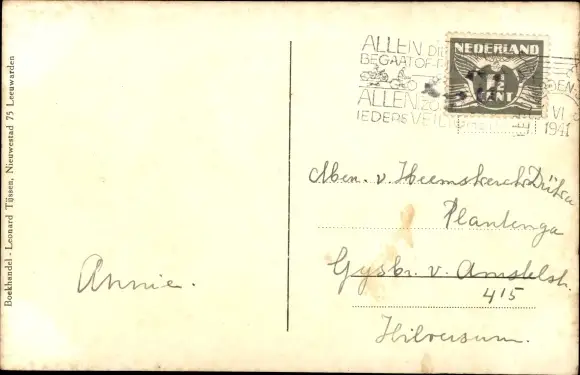 Boekhandel - Leonard Tijssen, Nieuwestad 75 Leeuwarden
ALLEN DIE
BEGAAT OF
ALLEN ZO
IEDERE VEIL
NEDERLAND
1½
CENT
VI
1941
v. Heemskerck
Plantenga
Gysbr. v. Amstelstr.
415
Hilversum.
Annie.